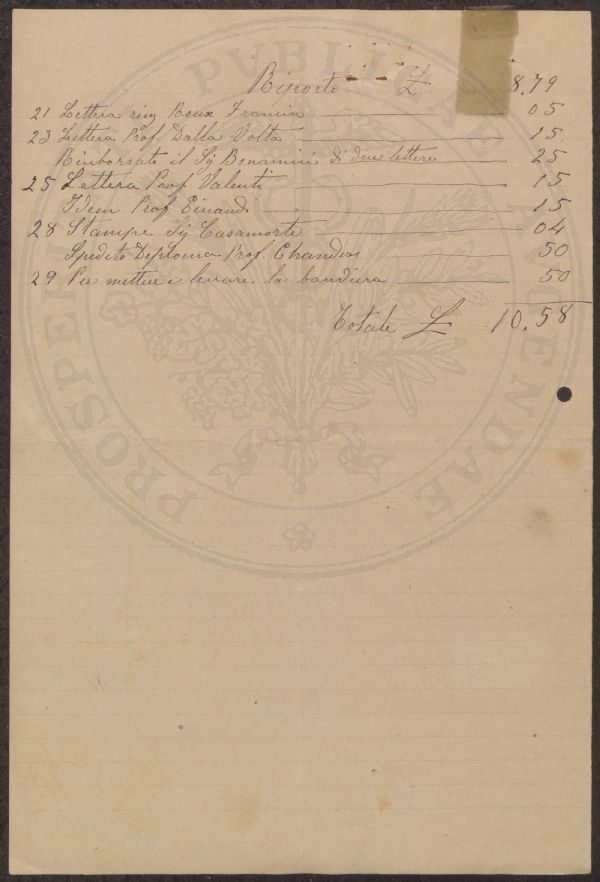 Riporto £ 8.79
21 Lettera sig Roux Francia 05
23 Lettera Prof. Dalla Volta 15
Rimborsate il Sig Benamini di due lettere 25
25 Lettera Prof Valenti 15
Idem Prof Einaudi 15
28 Stampe Sig Casamorte 04
Spedito Diploma Prof. Chandon 50
29 Per mettere e levare la bandiera 50
Totale £ 10.58
PROSPERI PVBLICAE AVGENDAE